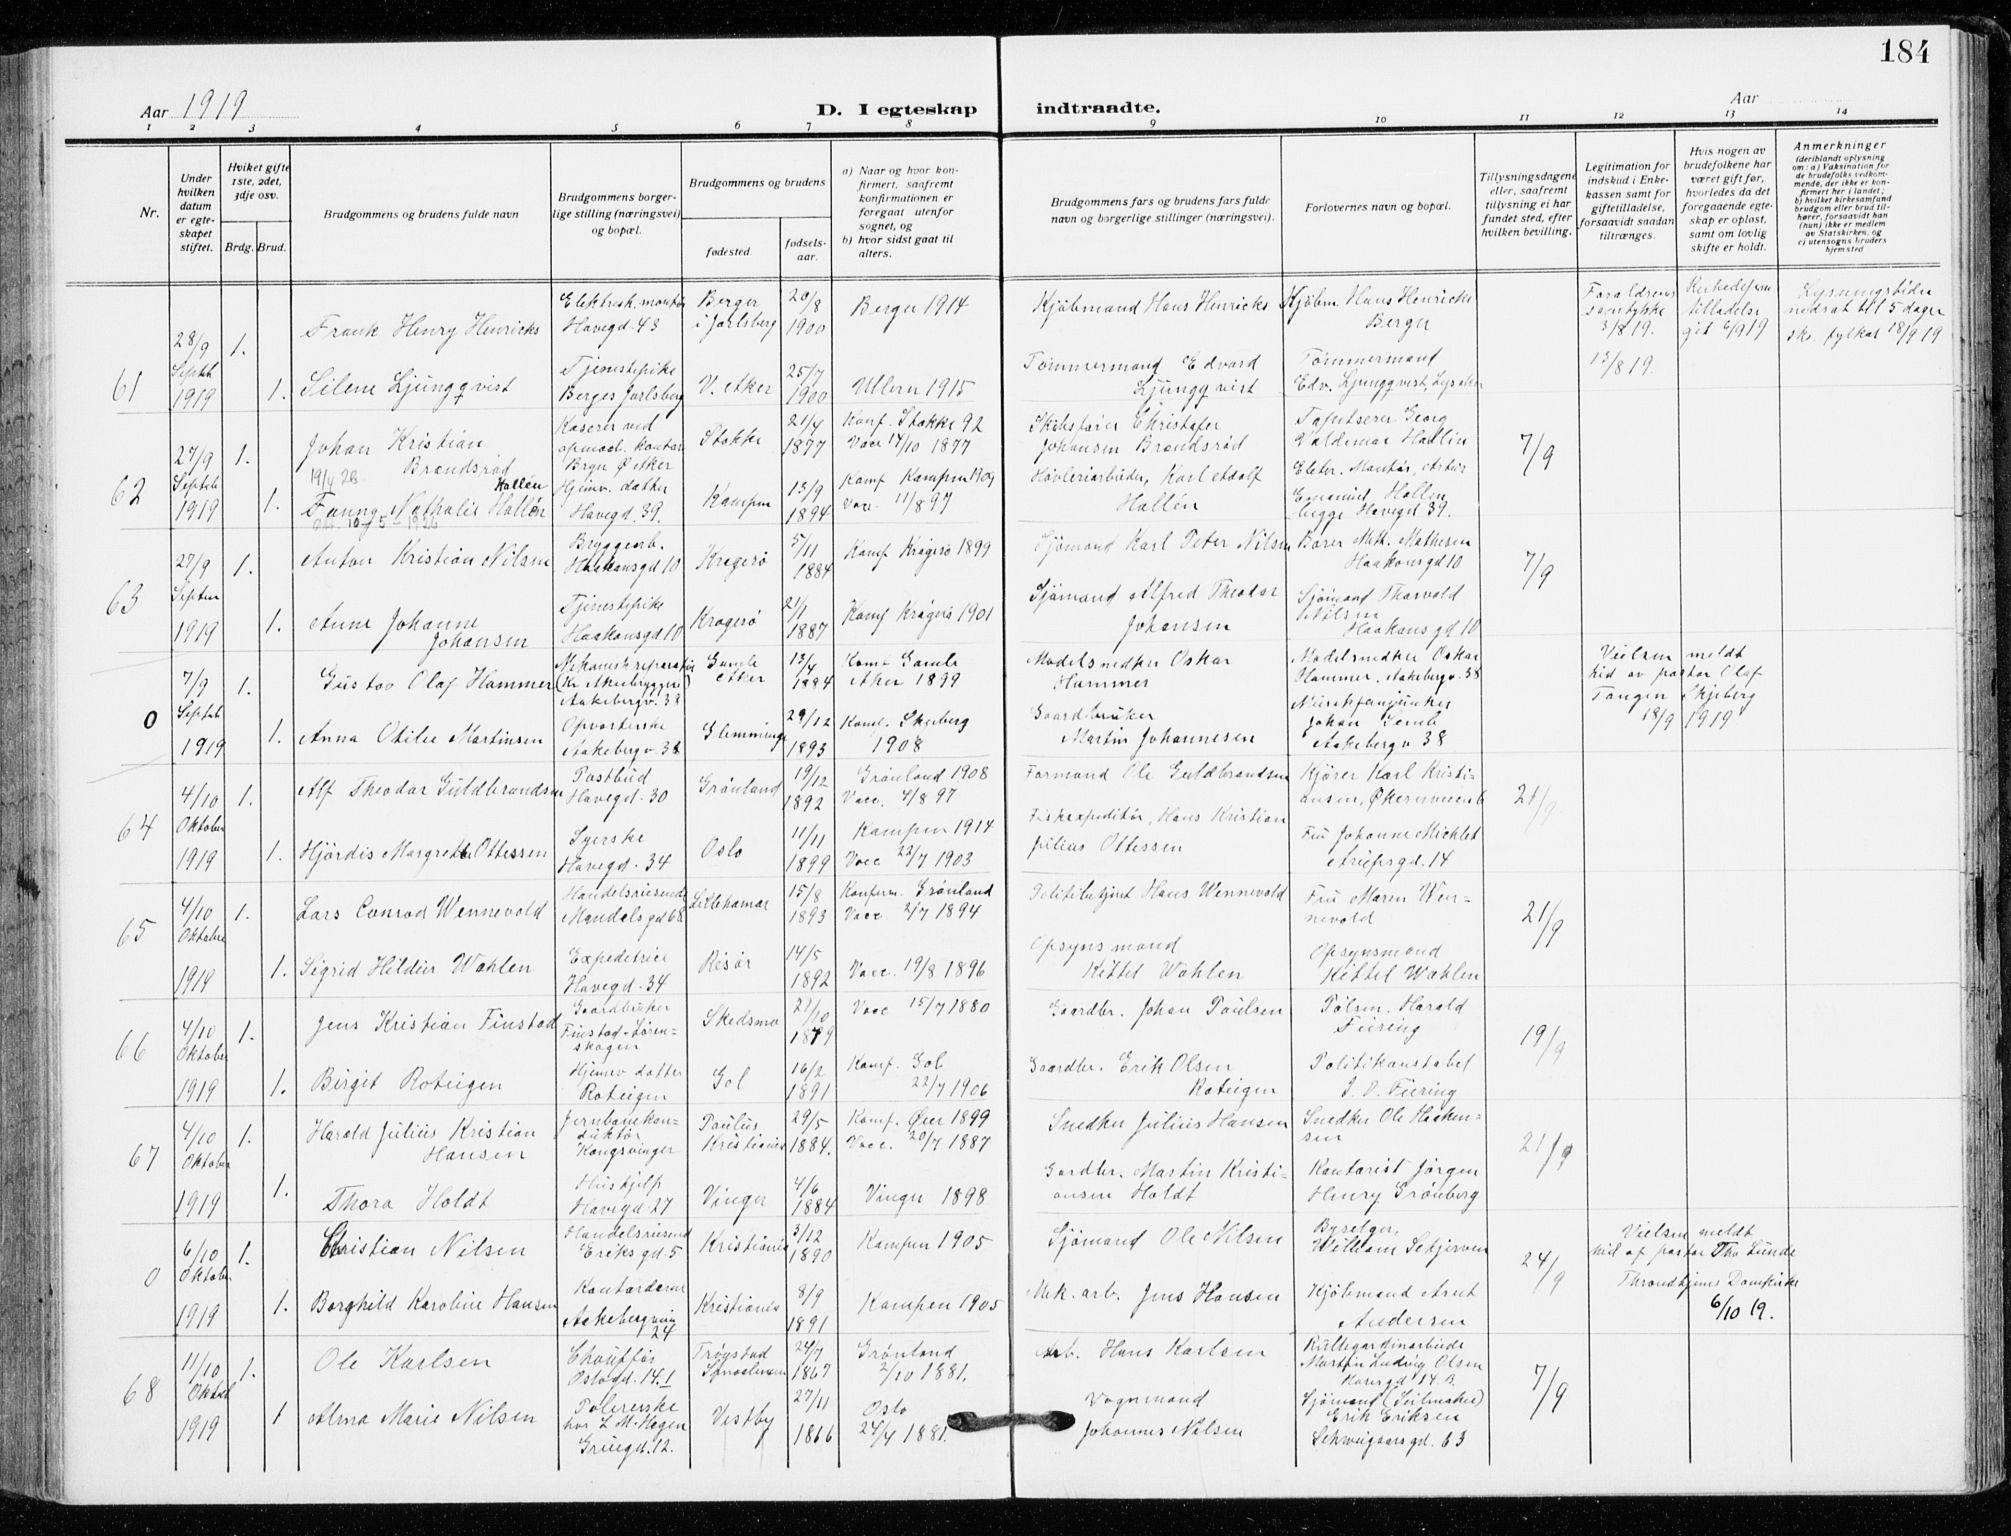 184
Aar 1919
D. I egteskap indtraadte.
Aar
1 2 3 4 5 6 7 8 9 10 11 12 13 14
Nr.
Under hvilken datum er egteskapet stiftet.
Hvilket gifte 1ste, 2det, 3dje osv.
Brdg. Brud.
Brudgommens og brudens fulde navn
Brudgommens borgerlige stilling (næringsvei) og bopæl.
Brudgommens og brudens
fødested.
fødselsaar.
a) Naar og hvor konfirmert, saafremt konfirmationen er foregaat utenfor sognet, og
b) hvor sidst gaat til alters.
Brudgommens fars og brudens fars fulde navn og borgerlige stillinger (næringsvei).
Forlovernes navn og bopæl.
Tillysningsdagene eller, saafremt tillysning ei har fundet sted, efter hvilken bevilling.
Legitimation for indskud i Enkekassen samt for giftetilladelse, forsaavidt saadan tiltrænges.
Hvis nogen av brudefolkene har været gift før, hvorledes da det foregaaende egteskap er opløst, samt om lovlig skifte er holdt.
Anmerkninger
(deriblandt oplysning om: a) Vaksination for de brudefolks vedkommende, der ikke er konfirmert her i landet; b) hvilket kirkesamfund brudgom eller brud tilhører, forsaavidt han (hun) ikke er medlem av Statskirken, og c) utensogns bruders hjemsted
61
28/9 Septb 1919
1.
Frank Henry Henricks
Elektrisk. montør Havegd. 43
Berger i Jarlsberg
20/8 1900
Berger 1914
Kjøbmand Hans Henricks
Kjøbm. Hans Henricks Berger
Forældrenes samtykke 3/8 19.
git 6/9 19
Lysningstiden nedsat til 5 dager
18/9 19
1.
Silene Ljungqvist
Tjenestepike Berger Jarlsberg
V. Aker
25/7 1900
Ullern 1915
Tømmermand Edvard Ljungqvist
Tømmermand Edv. Ljungqvist, Lysaker
15/8 19.
62
27/9 Septb 1919
1.
Johan Kristian Brandsrød
19/4 26
Kaserer ved
Bryn Ø. Aker
Stokke
21/4 1877
Konf. Stokke 92
Vacc 17/10 1877
Christofer Johansen Brandsrød
Tapetserer Georg Valdemar Hallén
7/9
1.
Hallén
Fanny Nathalie Hallén
10/5 - 1926
Hjemv. datter Havegd. 39.
Kampen
13/9 1894
Konf. Kampen 1909
Vacc. 11/8 97
Høvleriarbeider, Karl Adolf Hallén
Emanuel Hallén
begge Havegd 39.
63
27/9 Septem 1919
1.
Anton Kristian Nilsen
Bryggearb. Haakonsgd 10
Kragerø
5/11 1884
Konf Kragerø 1899
Sjømand Karl Peter Nilsen
Borer Mth. Mathesen Haakonsgd 10
7/9
1.
Anne Johanne Johansen
Tjenestepike Haakonsgd 10
Kragerø
21/1 1887
Konf Kragerø 1901
Sjømand Alfred Theodor Johansen
Sjømand Thorvald Nilsen Haakons gd 10
0
7/9 Septeb 1919
1.
Gustav Olaf Hammer
Mekanisk reparatør (Kr. Akebryggeri) Aakebergv. 38
Gamle Aker
13/4 1884
Konf Gamle Aker 1899
Modelsnedker Oskar Hammer
Modelsnedker Oskar Hammer. Aakebergv. 38
Vielsen meldt hid av pastor Olaf Tangen Skjeberg 18/9 1919
1.
Anna Otilie Martinsen
Opvarterske Aakebergv. 38
Glemminge
29/12 1893
Konf. Skjeberg 1908
Gaardbruker Martin Johannesen
Johan
Aakebergv 38
64
4/10 Oktober 1919
1.
Alf Theodor Guldbrandsen
Postbud Havegd. 30
Grønland
19/12 1892
Grønland 1908
Vacc. 4/8 97
Formand Ole Guldbrandsen
Kjører Karl Kristiansen, Økernveien 6
21/9
1.
Hjørdis Margrethe Ottessen
Syerske Havegd. 34
Oslo
11/11 1899
Kampen 1914
Vacc 22/7 1903
Fiskexpeditør, Hans Kristian Julius Ottessen
Fru Johanne Michlet
14
65
4/10 Oktober 1919
1.
Lars Conrad Wennevold
Handelsreisende Mandals gd 68
Lillehamar
15/8 1893
Konferm. Grønland
Vacc 2/7 1894
Politibetjent Hans Wennevold
Fru Maren Wennevold
21/9
1.
Sigrid Hildur Wahlen
Expeditrice Havegd. 34
Risør
14/5 1892
Vacc. 19/8 1896
Opsynsmand Kittel Wahlen
Opsynsmand Kittel Wahlen
66
4/10 Oktober 1919
1.
Jens Kristian Finstad
Gaardbruker Finstad - Lørenskogen
Skedsmo
21/10 1879
Vacc 15/7 1880
Gaardbr. Johan Paulsen
Pølsem. Harald Fiering
19/9
1.
Birgit Roteigen
Hjemv datter Roteigen
Gol
16/2 1891
Konf. Gol
22/7 1906
Gaardbr. Erik Olsen Roteigen
Politikonstabel J. O. Fiering
67
4/10 Oktober 1919
1.
Harald Julius Kristian Hansen
Jernbanekonduktør Kongsvinger
Paulus Kristiania
29/5 1884.
Konf. Øier 1899
Vacc. 20/7 1887
Snedker Julius Hansen
Snedker Ole Haakensen
21/9
1.
Thora Holdt
Hushjelp Havegd. 27
Vinger
4/6 1884
Vinger 1898
Gardbr. Martin Kristiansen Holdt
Kontorist Jørgen Henry Grønberg
0
6/10 Oktober 1919
1.
Christian Nilsen
Handelsreisend Eriks gd. 5
Kristiania
3/12 1890
Kampen 1905
Sjømand Ole Nilsen
William Schjerven
24/9
Vielsen meldt hid af pastor Tho Lunde Throndhjems Domkirke 6/10 19.
1.
Borghild Karoline Hansen
Kontordame Aakebergveien 24
Kristiania
8/9 1891
Kampen 1905
Mek. arb. Jens Hansen
Kjøbmand Arnt Andersen
68
11/10 Oktob 1919
1.
Ole Karlsen
Chauffør Oslogd. 14 I
Trøgstad
24/7 1867
Grønland 2/10 1881.
Arb. Hans Karlsen
Rullegardinarbeide Martin Ludvig Olsen
14 B.
7/9
1
Alma Marie Nilsen
Polererske hos L. M. Hagen Grüngd. 12.
Vestby
27/11 1866
Oslo 24/4 1881.
Vognmand Johannes Nilsen
Sjømand (Seilmaker) Erik Eriksen Schweigaarsgd. 63